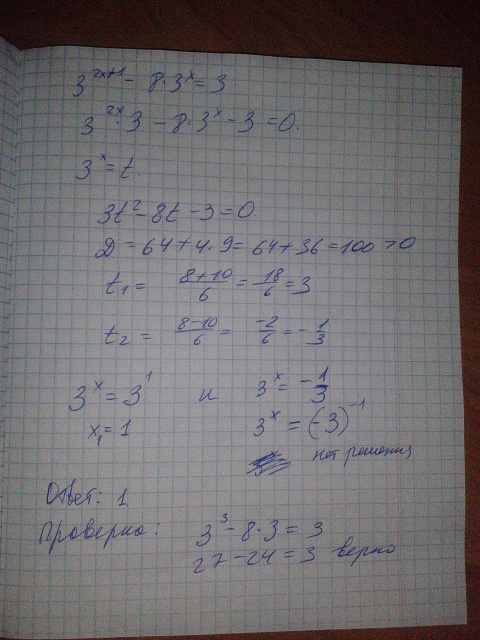 3^{2x+1} - 8·3^x = 3
3^{2x}·3 - 8·3^x - 3 = 0.
3^x = t.
3t² - 8t - 3 = 0.
D = 64 + 4·9 = 64 + 36 = 100 > 0
t₁ = (8+10)/6 = 18/6 = 3
t₂ = (8-10)/6 = -2/6 = -1/3
3^x = 3^1 и 3^x = -1/3
x₁ = 1 3^x = (-3)^{-1}
нет решения
Ответ: 1
Проверка: 3³ - 8·3 = 3
27 - 24 = 3 верно